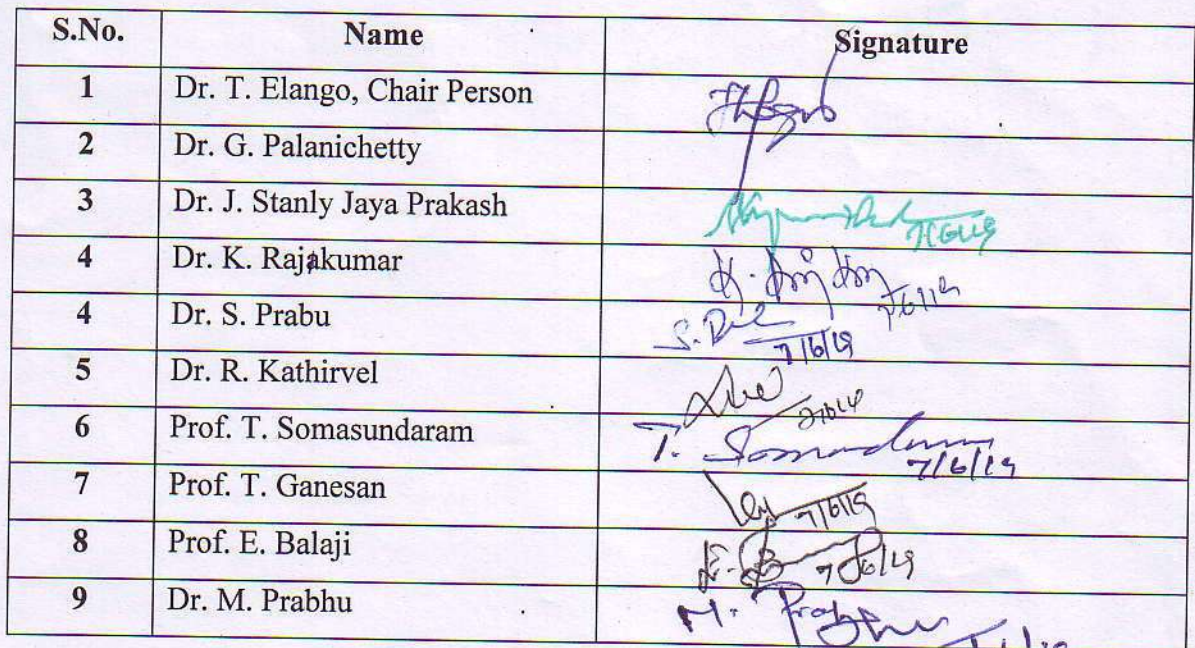 S.No. Name Signature
1 Dr. T. Elango, Chair Person
2 Dr. G. Palanichetty
3 Dr. J. Stanly Jaya Prakash 7/6/19
4 Dr. K. Rajakumar K. 7/6/19
4 Dr. S. Prabu S. 7/6/19
5 Dr. R. Kathirvel
6 Prof. T. Somasundaram T. 7/6/19
7 Prof. T. Ganesan 7/6/19
8 Prof. E. Balaji E. B 7/6/19
9 Dr. M. Prabhu M. Prabhu